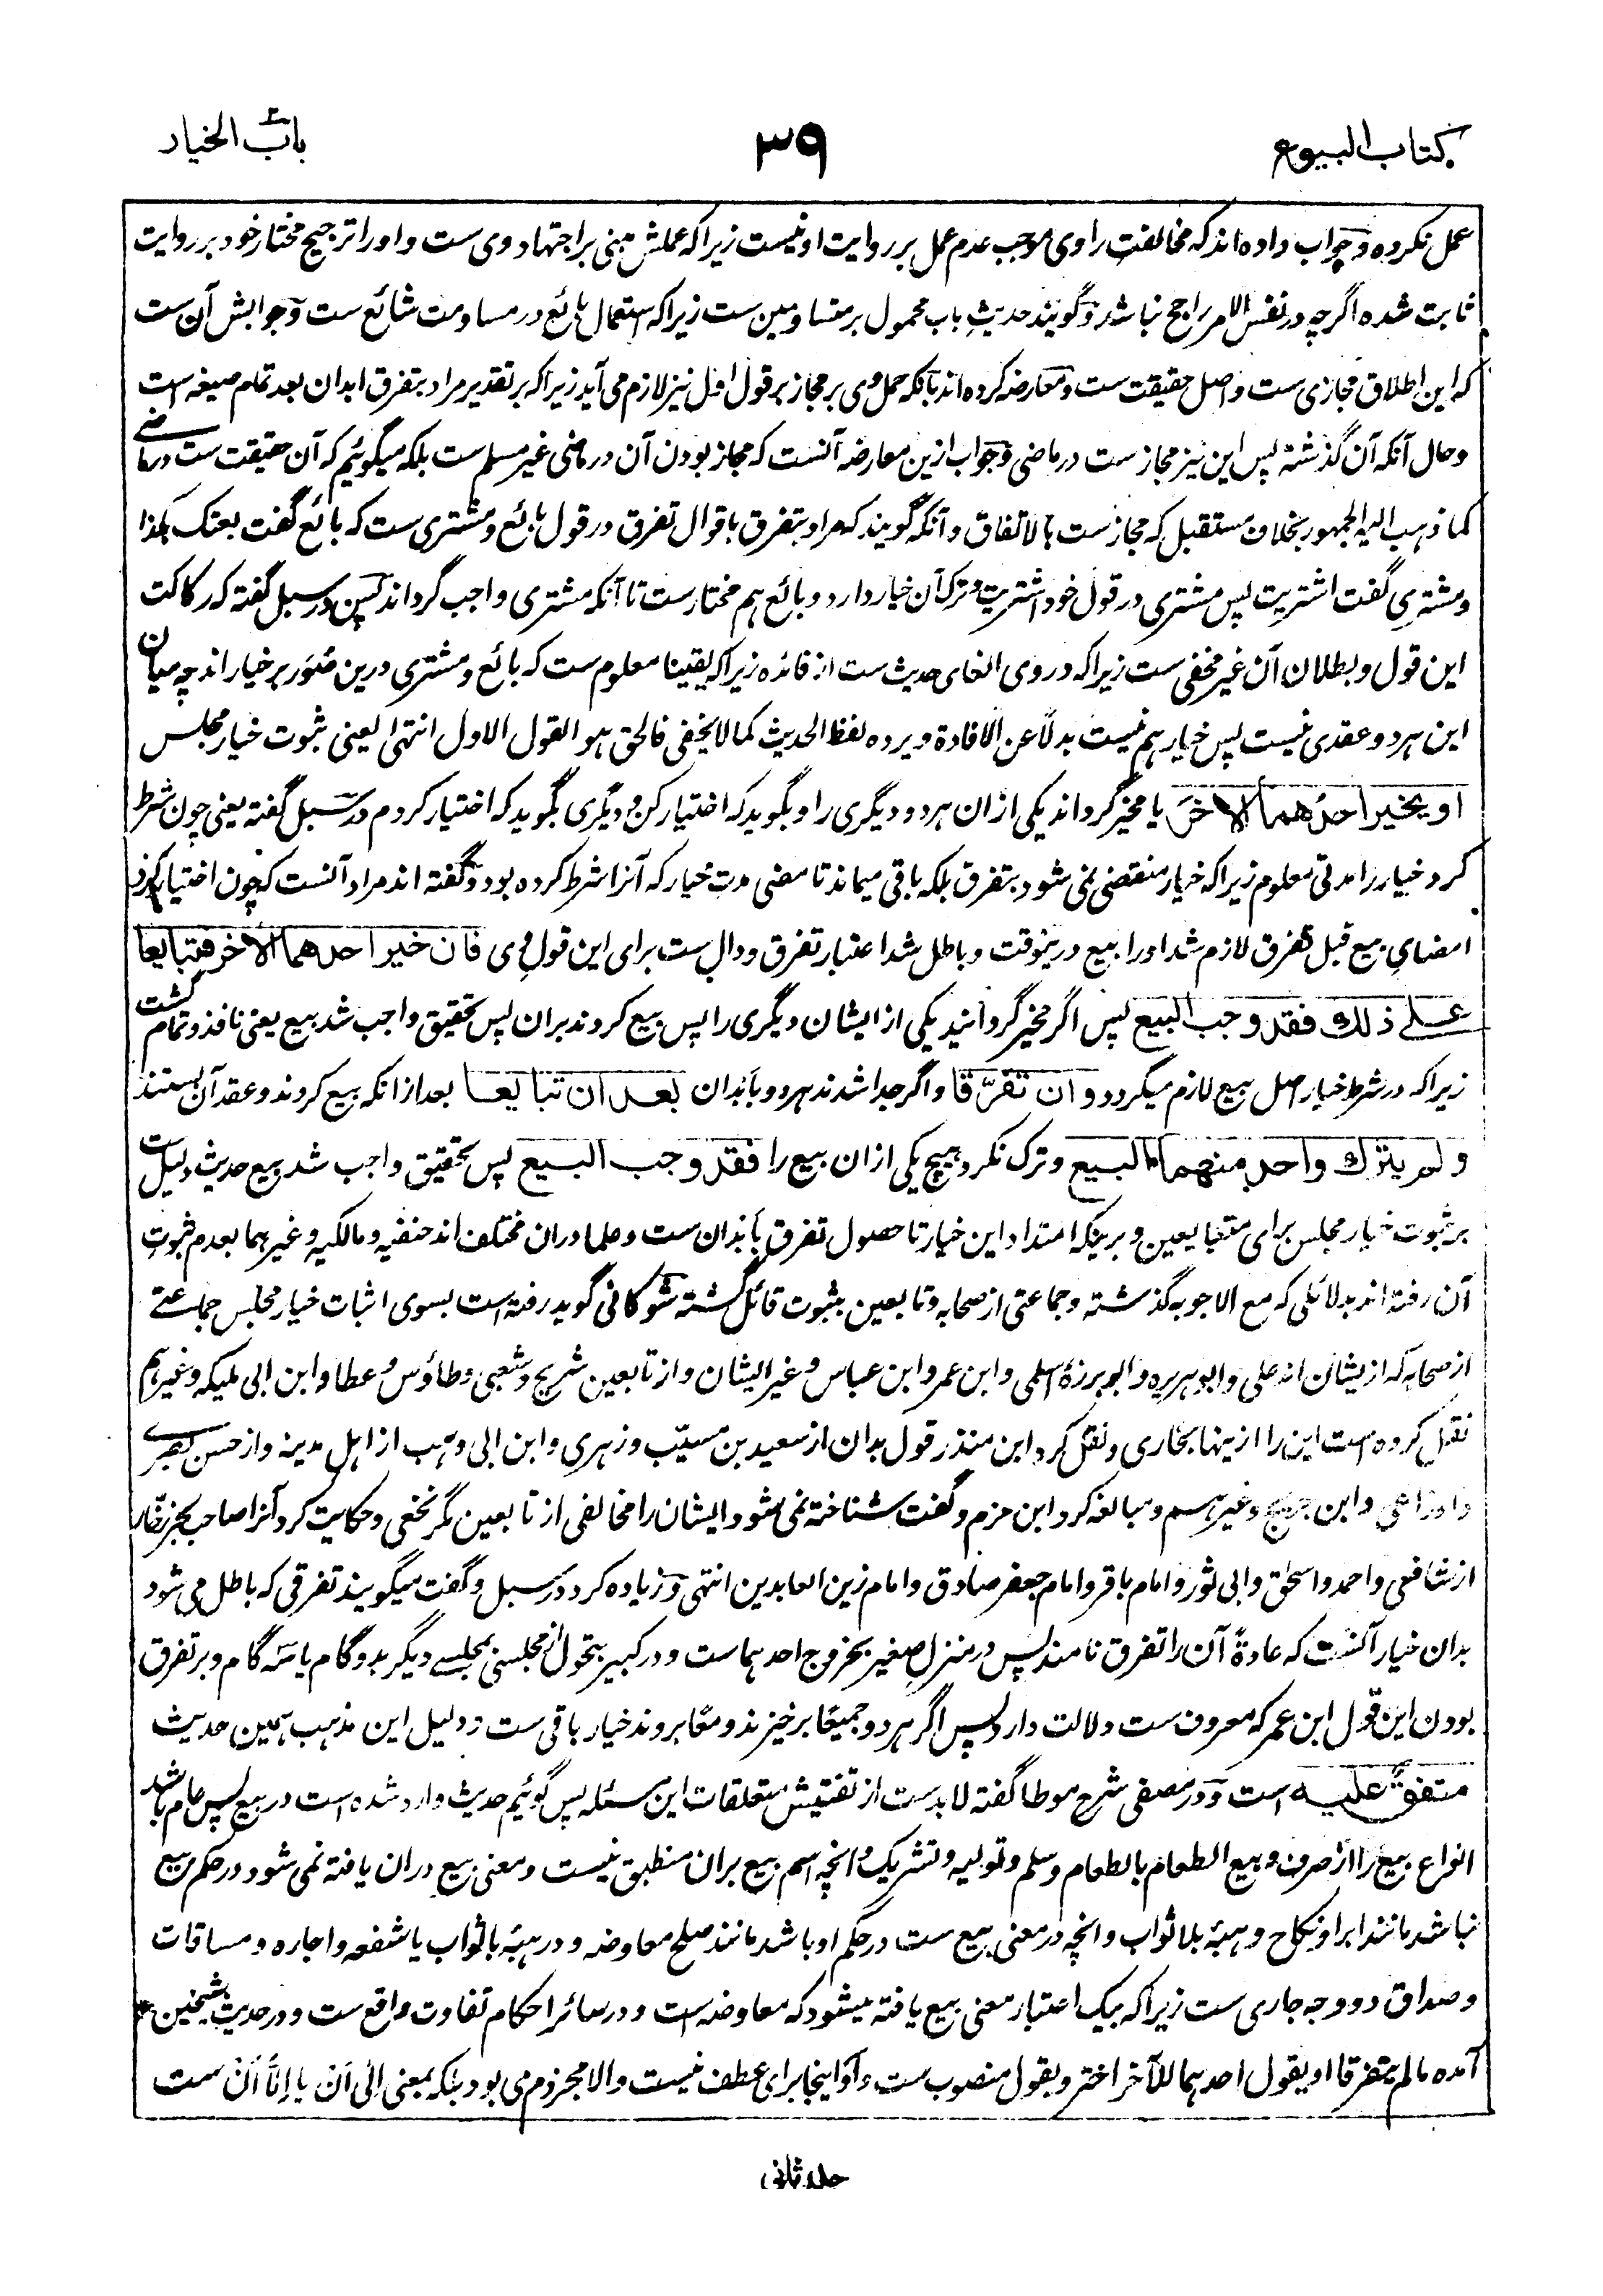 کتاب البیوع ۳۹ باب الخیار
عمل نکرده و جواب داده اند که مخالفت راوی موجب عدم عمل بر روایت او نیست زیراکه عملش مبنی بر اجتهاد وی ست و او را ترجیح مختار خود بر روایت
ثابت شده اگرچه در نفس الامر راجح نباشد و گویند حدیث باب محمول بر متساومین ست زیراکه استعمال بائع در مساومت شائع ست و جوابش آن ست
که این اطلاق مجازی ست و اصل حقیقت ست و معارضه کرده اند بآنکه حمل وی بر مجاز بر قول اول نیز لازم می آید زیراکه بر تقدیر مراد بتفرق ابدان بعد تمام صیغه است
و حال آنکه آن گذشته پس این نیز مجاز ست در ماضی و جواب ازین معارضه آنست که مجاز بودن آن در ماضی غیر مسلم ست بلکه میگوئیم که آن حقیقت ست در ماضی
کما ذهب الیه الجمهور بخلاف مستقبل که مجاز ست بالاتفاق و آنکه گویند که مراد بتفرق باقوال تفرق در قول بائع و مشتری ست که بائع گفت بعتک بکذا
و مشتری گفت اشتریت پس مشتری در قول خود اشتریت و ترک آن خیار دارد و بائع هم مختار ست تا آنکه مشتری واجب گرداند پس در سبل گفته که رکاکت
این قول و بطلان آن غیر مخفی ست زیراکه در وی الغای حدیث ست از فائده زیراکه یقینا معلوم ست که بائع و مشتری درین صور بر خیار اند چه میان
این هر دو عقدی نیست پس خیار هم نیست بدلا عن الافادة و یرده لفظ الحدیث کما لا یخفی فالحق هو القول الاول انتهی یعنی ثبوت خیار مجلس
او یخیر احدهما الاخر یا مخیر گرداند یکی ازان هر دو دیگری را و بگوید که اختیار کن و دیگری بگوید که اختیار کردم در سبل گفته یعنی چون شرط
کرد خیار را مدتی معلوم زیراکه خیار منقضی نمی شود بتفرق بلکه باقی میماند تا مضی مدت خیار که آنرا شرط کرده بود و گفته اند مراد آنست که چون اختیار کرد
امضای بیع قبل تفرق لازم شد او را بیع درینوقت و باطل شد اعتبار تفرق و دال ست برای این قول وی فان خیر احدهما الاخر فتبایعا
علی ذلك فقد وجب البیع پس اگر مخیر گردانید یکی از ایشان دیگری را پس بیع کردند بران پس تحقیق واجب شد بیع یعنی نافذ و تمام گشت
زیراکه در شرط خیار اصل بیع لازم میگردد وان تفرّقا و اگر جدا شدند هر دو بأبدان بعد ان تبایعا بعد ازانکه بیع کردند و عقد آن بستند
ولم یترك واحد منهما البیع و ترک نکرد هیچ یکی ازان بیع را فقد وجب البیع پس تحقیق واجب شد بیع حدیث دلیل ست
بر ثبوت خیار مجلس برای متبایعین و برینکه امتداد این خیار تا حصول تفرق بأبدان ست و علما دران مختلف اند حنفیه و مالکیه و غیرهما بعدم ثبوت
آن رفته اند بدلائلی که مع الاجوبه گذشته و جماعتی از صحابه و تابعین بثبوت قائل گشته شوکانی گوید رفته است بسوی اثبات خیار مجلس جماعتی
از صحابه که ازیشان اند علی و ابوهریره و ابو برزۀ اسلمی و ابن عمر و ابن عباس و غیر ایشان و از تابعین شریح و شعبی و طاؤس و عطا و ابن ابی ملیکه و غیرهم
نقل کرده است این را ازینها بخاری و نقل کرد ابن منذر قول بدان از سعید بن مسیّب و زهری و ابن ابی وهب از اهل مدینه و از حسن بصری
و اوزاعی و ابن جریج و غیرهم و مبالغه کرد ابن حزم و گفت شناخته نمی شود ایشان را مخالفی از تابعین مگر نخعی و حکایت کرد آنرا صاحب بحر زخّار
از شافعی و احمد و اسحٰق و ابی ثور و امام باقر و امام جعفر صادق و امام زین العابدین انتهی و زیاده کرد در سبل و گفت میگویند تفرقی که باطل می شود
بدان خیار آنست که عادةً آن را تفرق نامند پس در منزل صغیر بخروج احدهما ست و در کبیر بتحول از مجلسی بمجلسے دیگر بدو گام یا سه گام و بر تفرق
بودن این قول ابن عمر که معروف ست دلالت دارد پس اگر هر دو جمیعًا برخیزند و معًا بروند خیار باقی ست و دلیل این مذهب همین حدیث
متفقٌ علیه است و در مصفی شرح موطا گفته لابد ست از تفتیش متعلقات این مسئله پس گوئیم حدیث وارد شده است در بیع پس عام باشد
انواع بیع را از صرف و بیع الطعام بالطعام و سلم و تولیه و تشریک و آنچه اسم بیع بران منطبق نیست و معنی بیع دران یافته نمی شود در حکم بیع
نباشد مانند ابرا و نکاح و هبۀ بلا ثواب و آنچه در معنی بیع ست در حکم او باشد مانند صلح معاوضه و در هبۀ با ثواب یا شفعه و اجاره و مساقات
و صداق دو وجه جاری ست زیراکه بیک اعتبار معنی بیع یافته میشود که معاوضه است و در سائر احکام تفاوت واقع ست و در حدیث شیخین
آمده ما لم یتفرقا او یقول احدهما للآخر اختر و یقول منصوب ست و أو اینجا برای عطف نیست والا مجزوم می بود بلکه بمعنی الی أن یا الّا أن ست
جلد ثانی